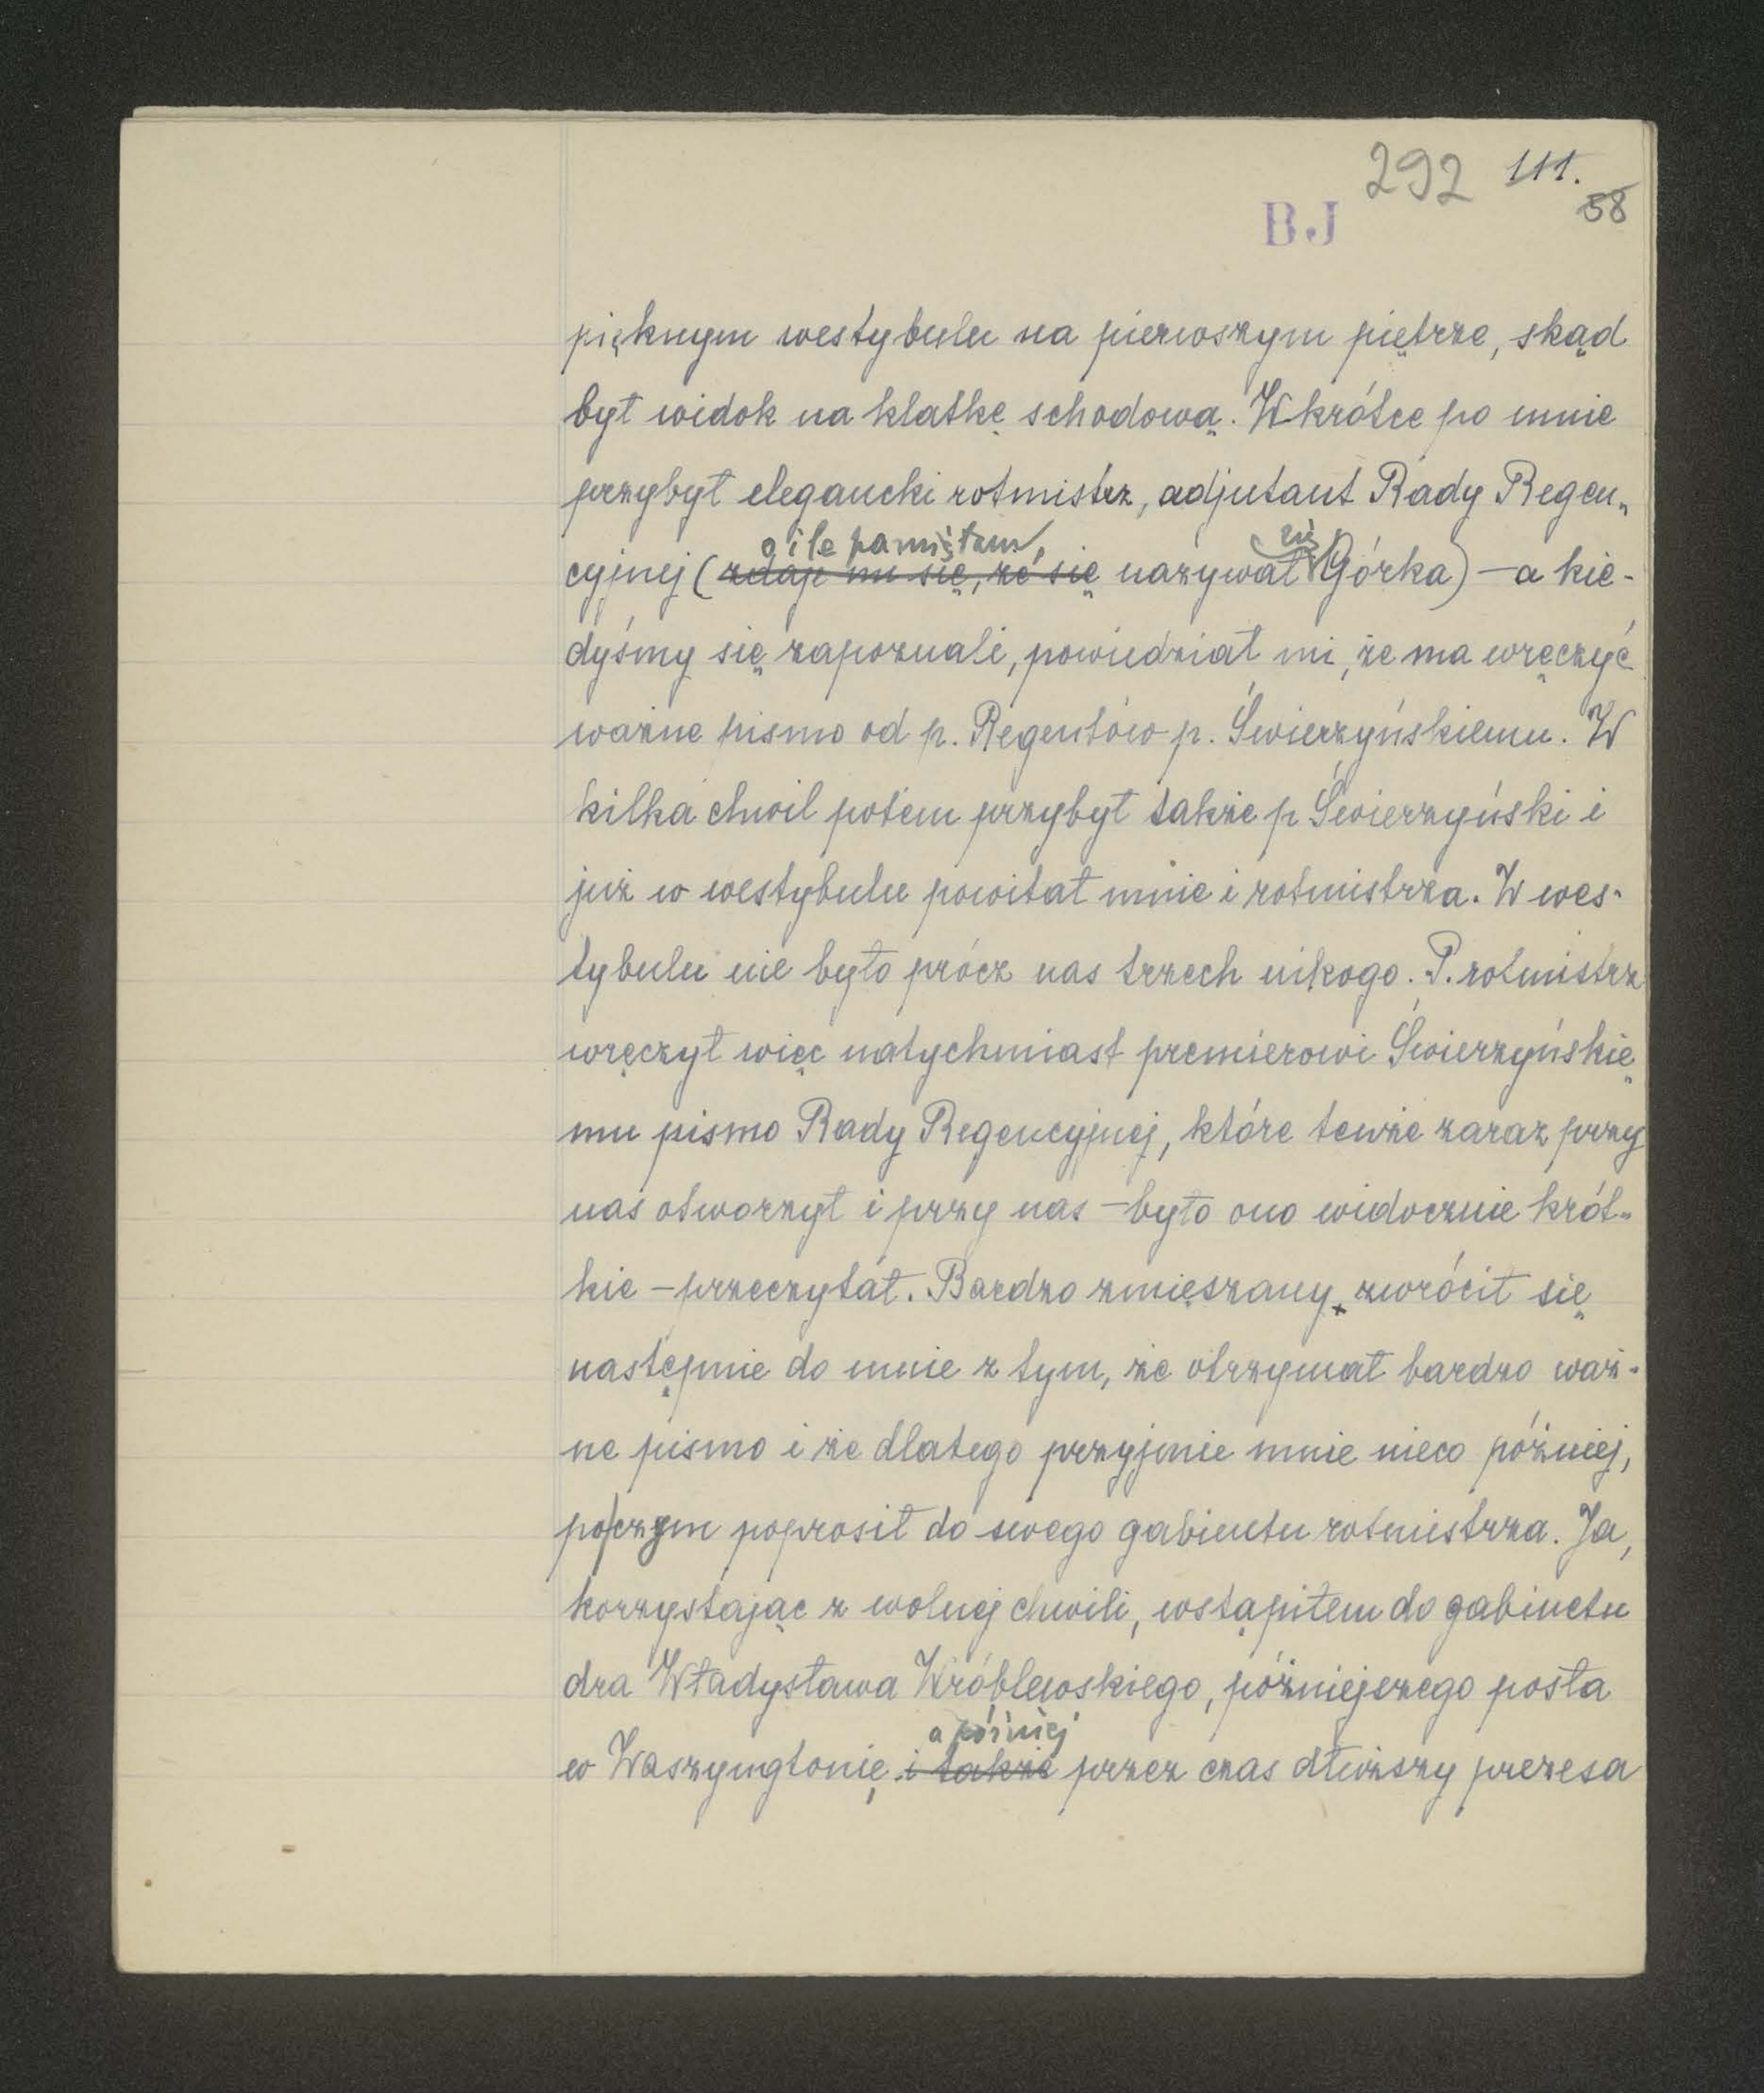 292 111.
58
BJ
pięknym westybulu na pierwszym piętrze, skąd
był widok na klatkę schodową. Wkrótce po mnie
przybył elegancki rotmistrz, adjutant Rady Regen„
o ile pamiętam, się
cyjnej (zdaje mi się, że się nazywał Górka) – a kie-
dyśmy się zapoznali, powiedział mi, że ma wręczyć
ważne pismo od p. Regentów p. Świerzyńskiemu. W
kilka chwil potem przybył także p Świerzyński i
już w westybulu powitał mnie i rotmistrza. W wes-
tybulu nie było prócz nas trzech nikogo. P. rotmistrz
wręczył więc natychmiast premierowi Świerzyńskie„
mu pismo Rady Regencyjnej, które tenże zaraz przy
nas otworzył i przy nas – było ono widocznie krót„
kie – przeczytał. Bardzo zmięszany, zwrócił się
następnie do mnie z tym, że otrzymał bardzo waż-
ne pismo i że dlatego przyjmie mnie nieco później,
poczym poprosił do swego gabinetu rotmistrza. Ja,
korzystając z wolnej chwili, wstąpiłem do gabinetu
dra Władysława Wróblewskiego, późniejszego posła
a później
w Waszyngtonie, i także przez czas dłuższy prezesa